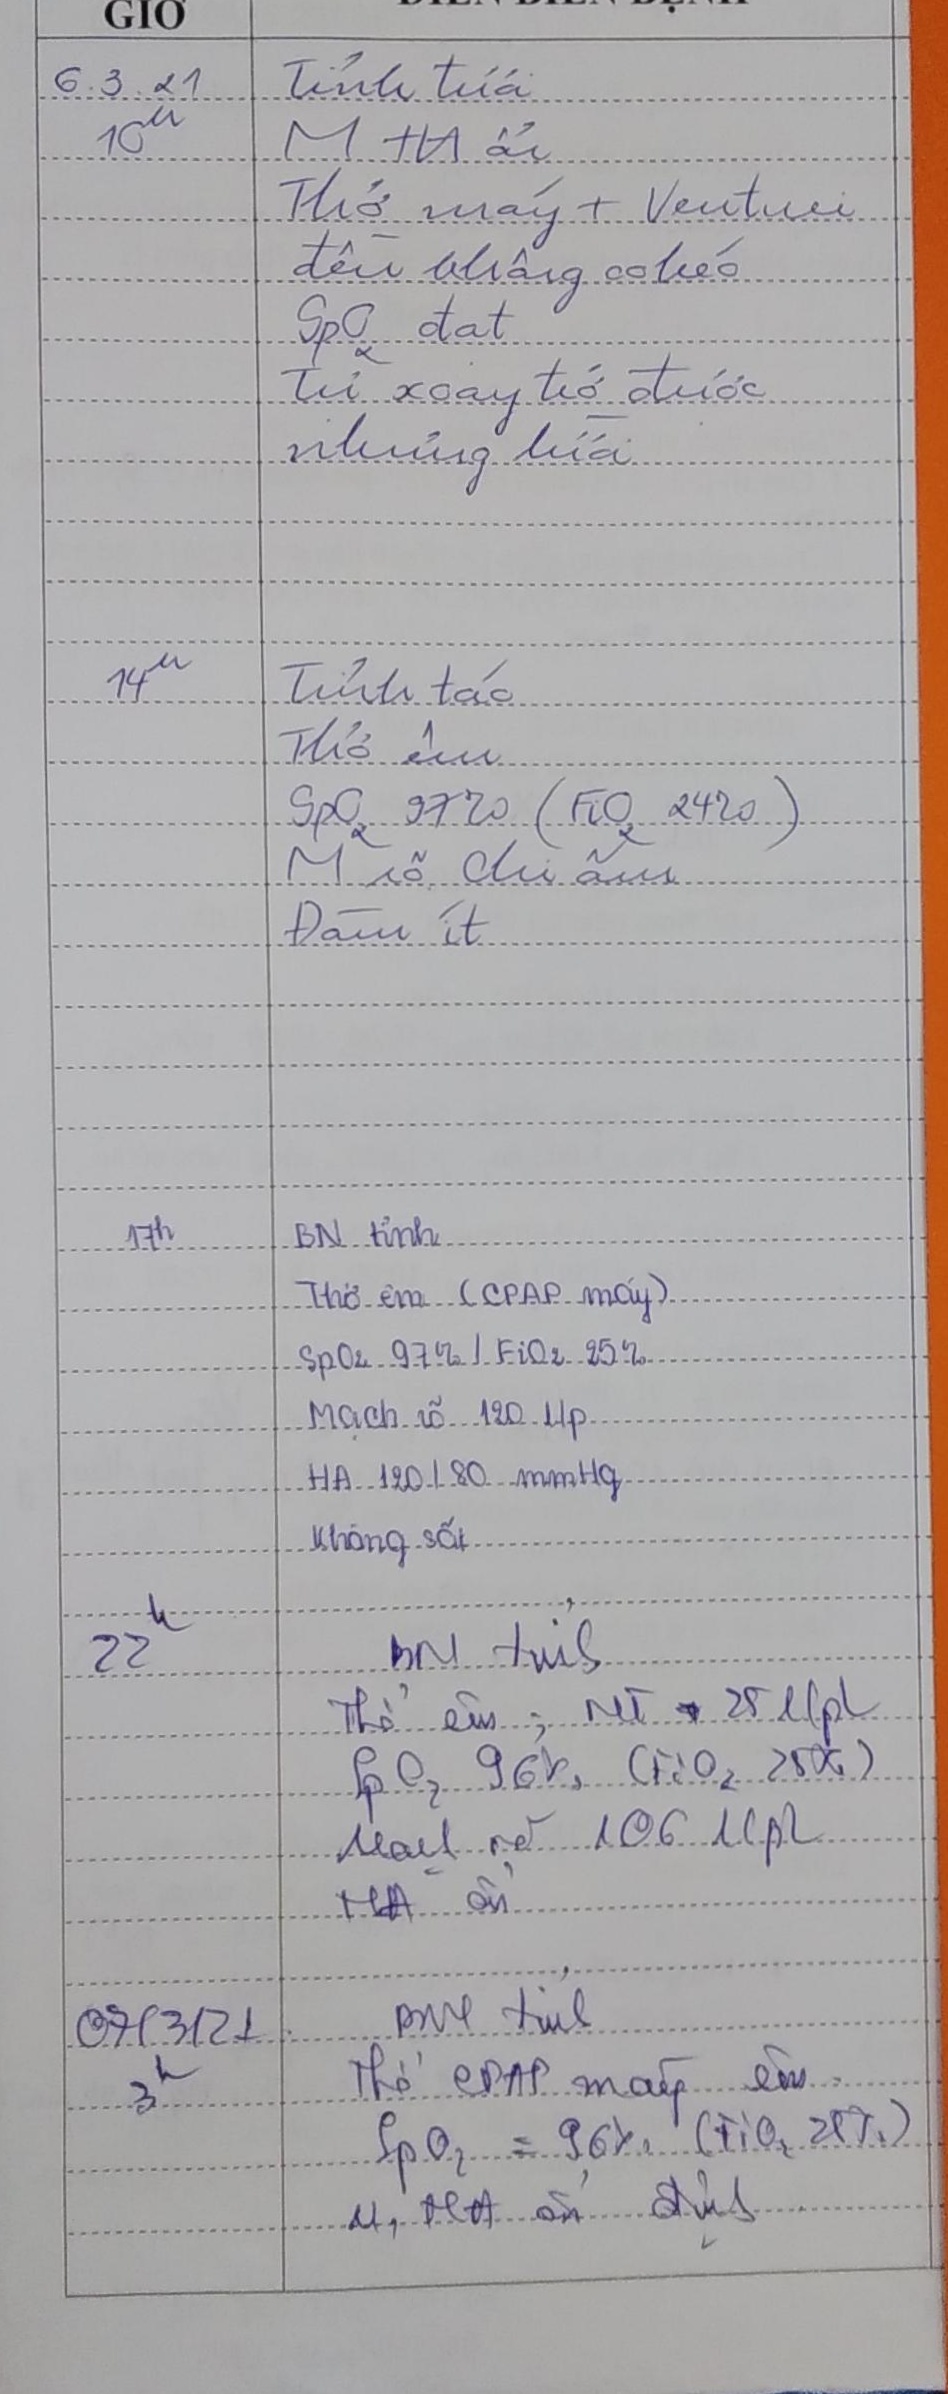 GIỜ DIỄN BIẾN BỆNH
6.3.21 Tỉnh
10h M HA ổn
Thở máy + Venturi
đều không co kéo
SpO2 đạt
Tự xoay trở được
14h Tỉnh táo
Thở êm
SpO2 97% (FiO2 24%)
M rõ, chi ấm
Đàm ít
17h BN tỉnh
Thở êm (CPAP máy)
SpO2 97% / FiO2 25%
Mạch rõ 120 l/p
HA 120/80 mmHg
Không sốt
22h BN tỉnh
Thở êm, NT 25 l/ph
SpO2 96% (FiO2 25%)
Mạch rõ 106 l/ph
HA ổn
07/3/21 BN tỉnh
3h Thở CPAP máy êm
SpO2 = 96% (FiO2 25%)
M, HA ổn định